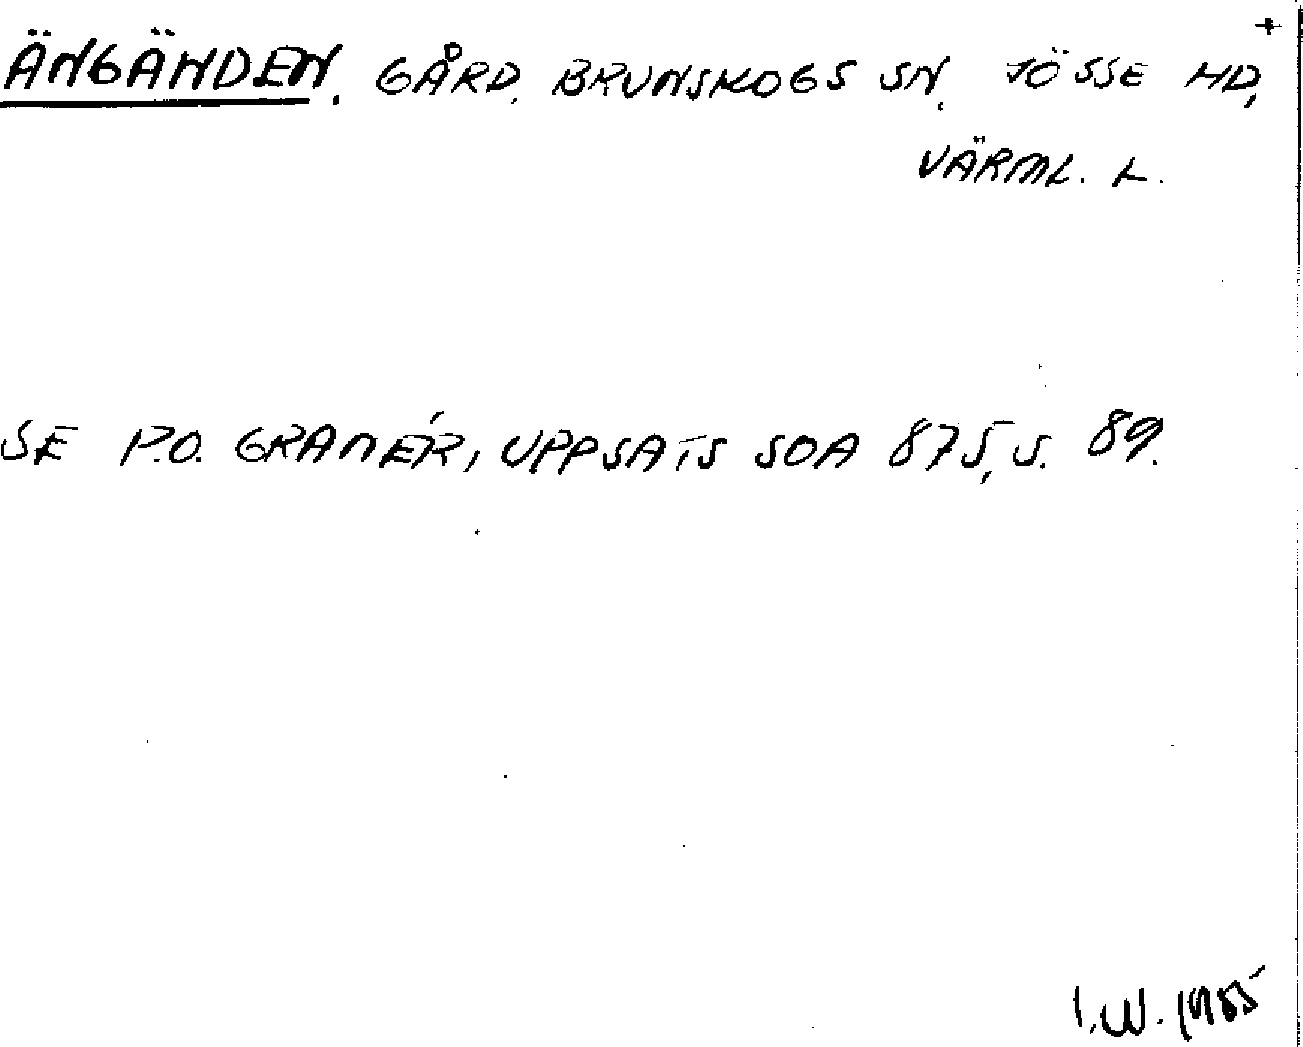 +
ÄNGÄNDEN. GÅRD. BRUNSKOGS SN. JÖSSE HD,
VÄRML. L.
SE P.O. GRANÉR, UPPSATS SOA 875, S. 89.
I.W. 1985